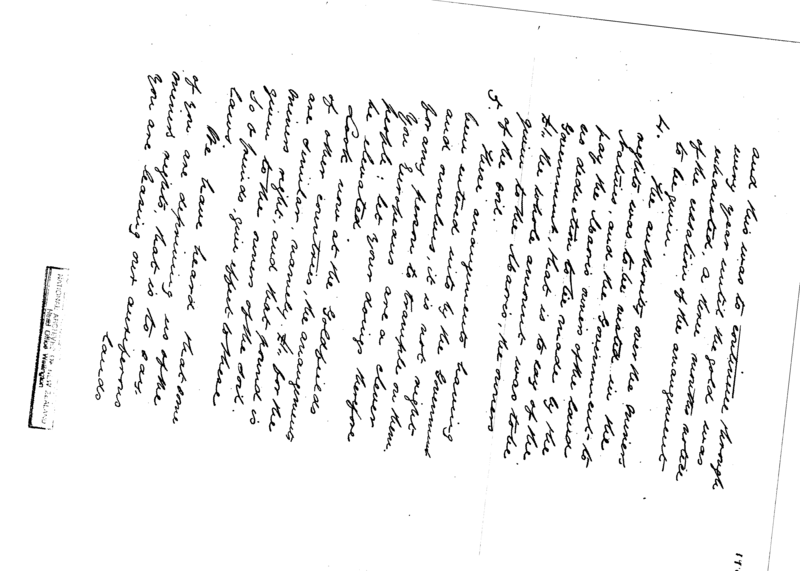 and this was to continue through
every year until the gold was
exhausted, a three months notice
of the cessation of the arrangement
to be given.
4. The authority over the miners
rights was to be vested in the
Natives, and the Government to
pay the Maoris owners of the land
no deduction to be made by the
Government, that is to say of the
£1. the whole amount was to be
given to the Maoris, the owners
of the soil.
5. These arrangements having
been entered into by the Government
and ourselves, it is not right
for any person to trample on them.
You Europeans are a clever
people; let your doings therefore
be elevated.
Look now at the Goldfields
of other countries, the arrangements
are similar, namely, £1. for the
miners right, and that pound is
given to the owners of the soil.
So o friends, give effect to these
laws.
We have heard that some
of you are depriving us of the
miners rights, that is to say.
You are leasing out auriferous
lands
NATIONAL ARCHIVES OF NEW ZEALAND
Head Office Wellington